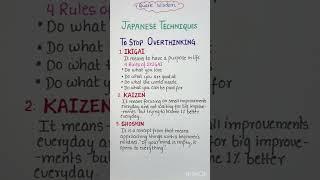 Quick Wisdom
JAPANESE TECHNIQUES
TO STOP OVERTHINKING
1. IKIGAI
It means to have a purpose in life
4 Rules of IKIGAI
• Do what you love
• Do what you are good at
• Do what the world needs
• Do what you can be paid for
2. KAIZEN
It means focusing on small improvements
everyday and not looking for big improve-
-ments but trying to become 1% better
everyday
3. SHOSHIN
It is a concept from that means
approaching things with a beginner's
mindset. "If your mind is empty, it
opens to everything".
4 Rules
Do what
Do what
Do what
Do what
2. KAIZEN
It means
everyday
-ments
everyday
improvements
big improve-
1% better